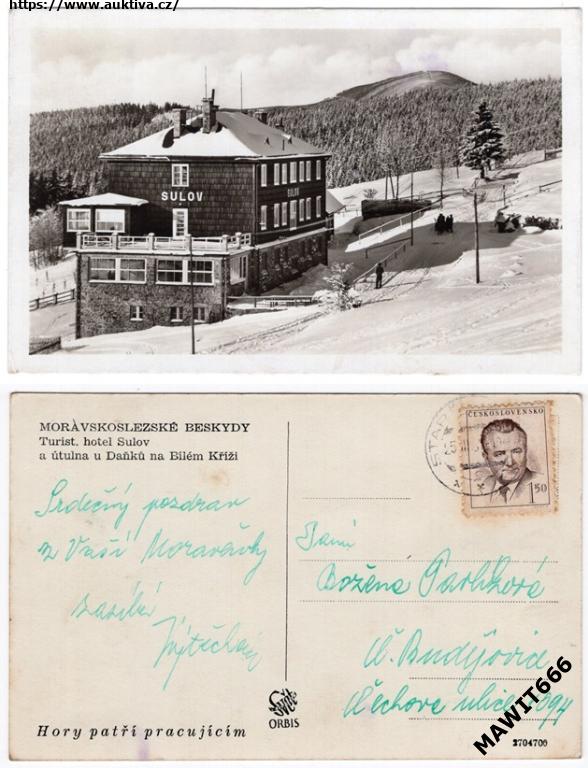 https://www.auktiva.cz/
SULOV
SULOV
MORAVSKOSLEZSKÉ BESKYDY
Turist. hotel Sulov
a útulna u Daňků na Bílém Kříži
ČESKOSLOVENSKO
1.50
Srdečný pozdrav
z Vaší Moravěnky
zasílá
Paní
Božena Pavlíková
Č. Budějovice
ulice
ORBIS
Hory patří pracujícím
2704700
MAWIT666